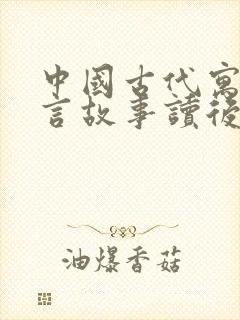 中國古代寓
言故事讀後
油爆香菇